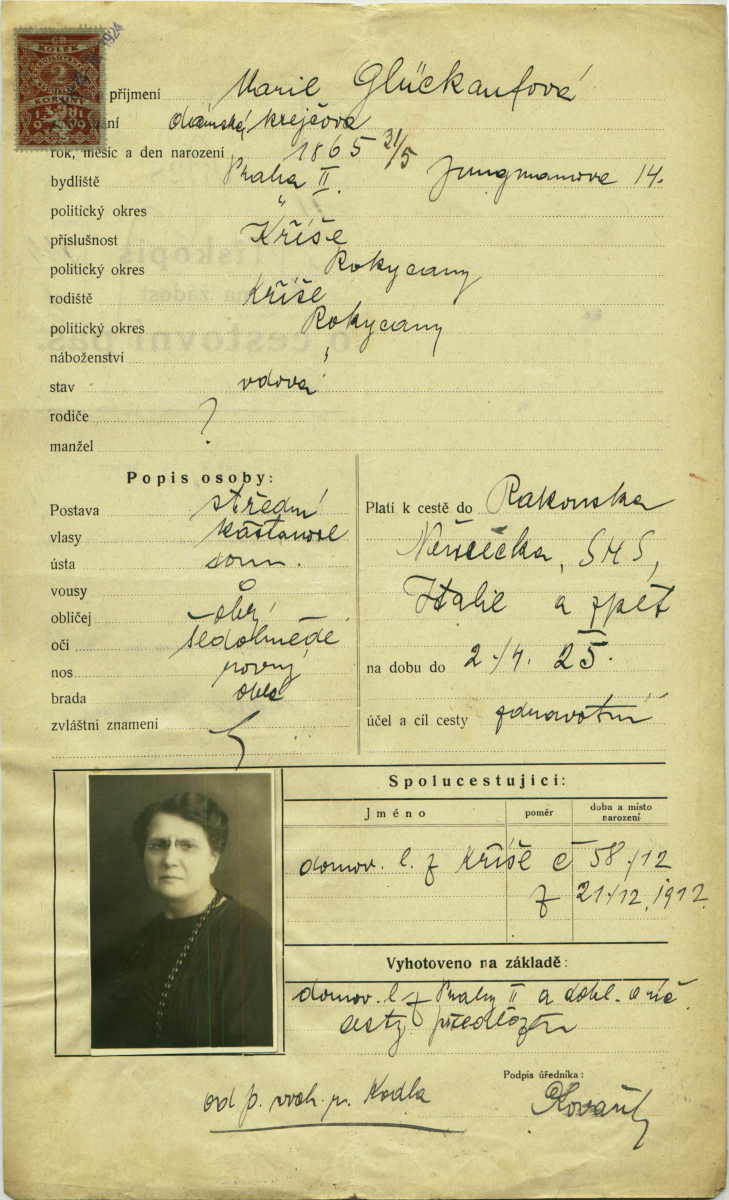 KOLEK
2
KORUNY
1919
1924
příjmení Marie Glückaufová
dámská krejčová
rok, měsíc a den narození 1865 31/5
bydliště Praha II. Jungmanova 14.
politický okres "
příslušnost Kříše
politický okres Rokycany
rodiště Kříše
politický okres Rokycany
náboženství
stav vdova
rodiče ?
manžel
Popis osoby:
Postava střední
vlasy kaštanové
ústa soum.
vousy 0
obličej obl.
oči šedohnědé
nos rovný
brada oblá
zvláštní znamení
Platí k cestě do Rakouska
Německa, SHS,
Italie a zpět
na dobu do 2./4. 25.
účel a cíl cesty zdravotní
Spolucestující:
Jméno poměr doba a místo narození
domov. l. z Kříše č 58/12
z 21/12. 1912.
Vyhotoveno na základě:
domov. l. z Prahy II a
cesty předložen
Podpis úředníka:
od p. vrch. r. Kodla
Kovařík